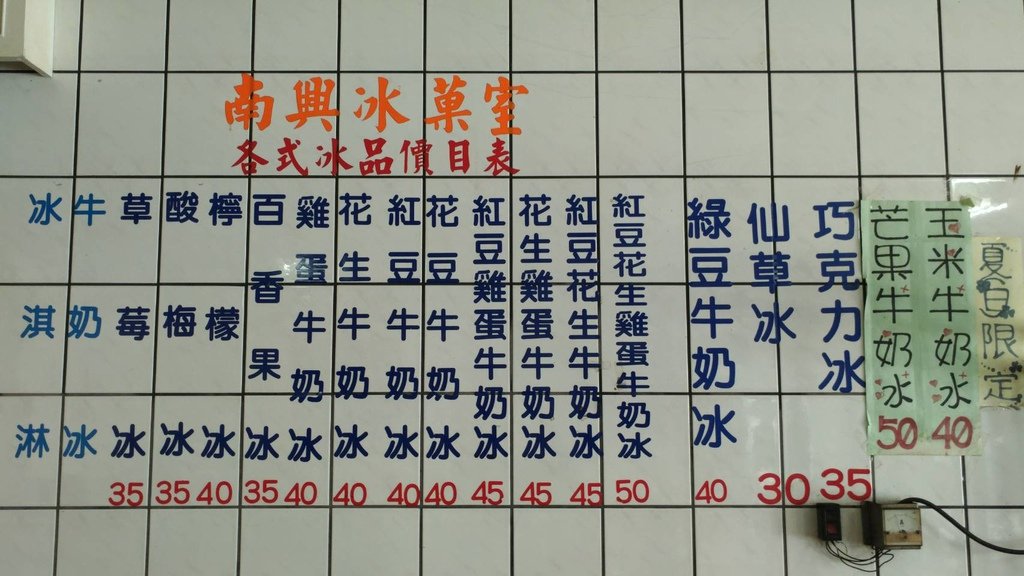 南興冰菓室
各式冰品價目表
冰淇淋
牛奶冰
草莓冰
35
酸梅冰
35
檸檬冰
40
百香果冰
35
雞蛋牛奶冰
40
花生牛奶冰
40
紅豆牛奶冰
40
花豆牛奶冰
40
紅豆雞蛋牛奶冰
45
花生雞蛋牛奶冰
45
紅豆花生牛奶冰
45
紅豆花生雞蛋牛奶冰
50
綠豆牛奶冰
40
仙草冰
30
巧克力冰
35
芒果牛奶冰
50
玉米牛奶冰
40
夏日限定
A